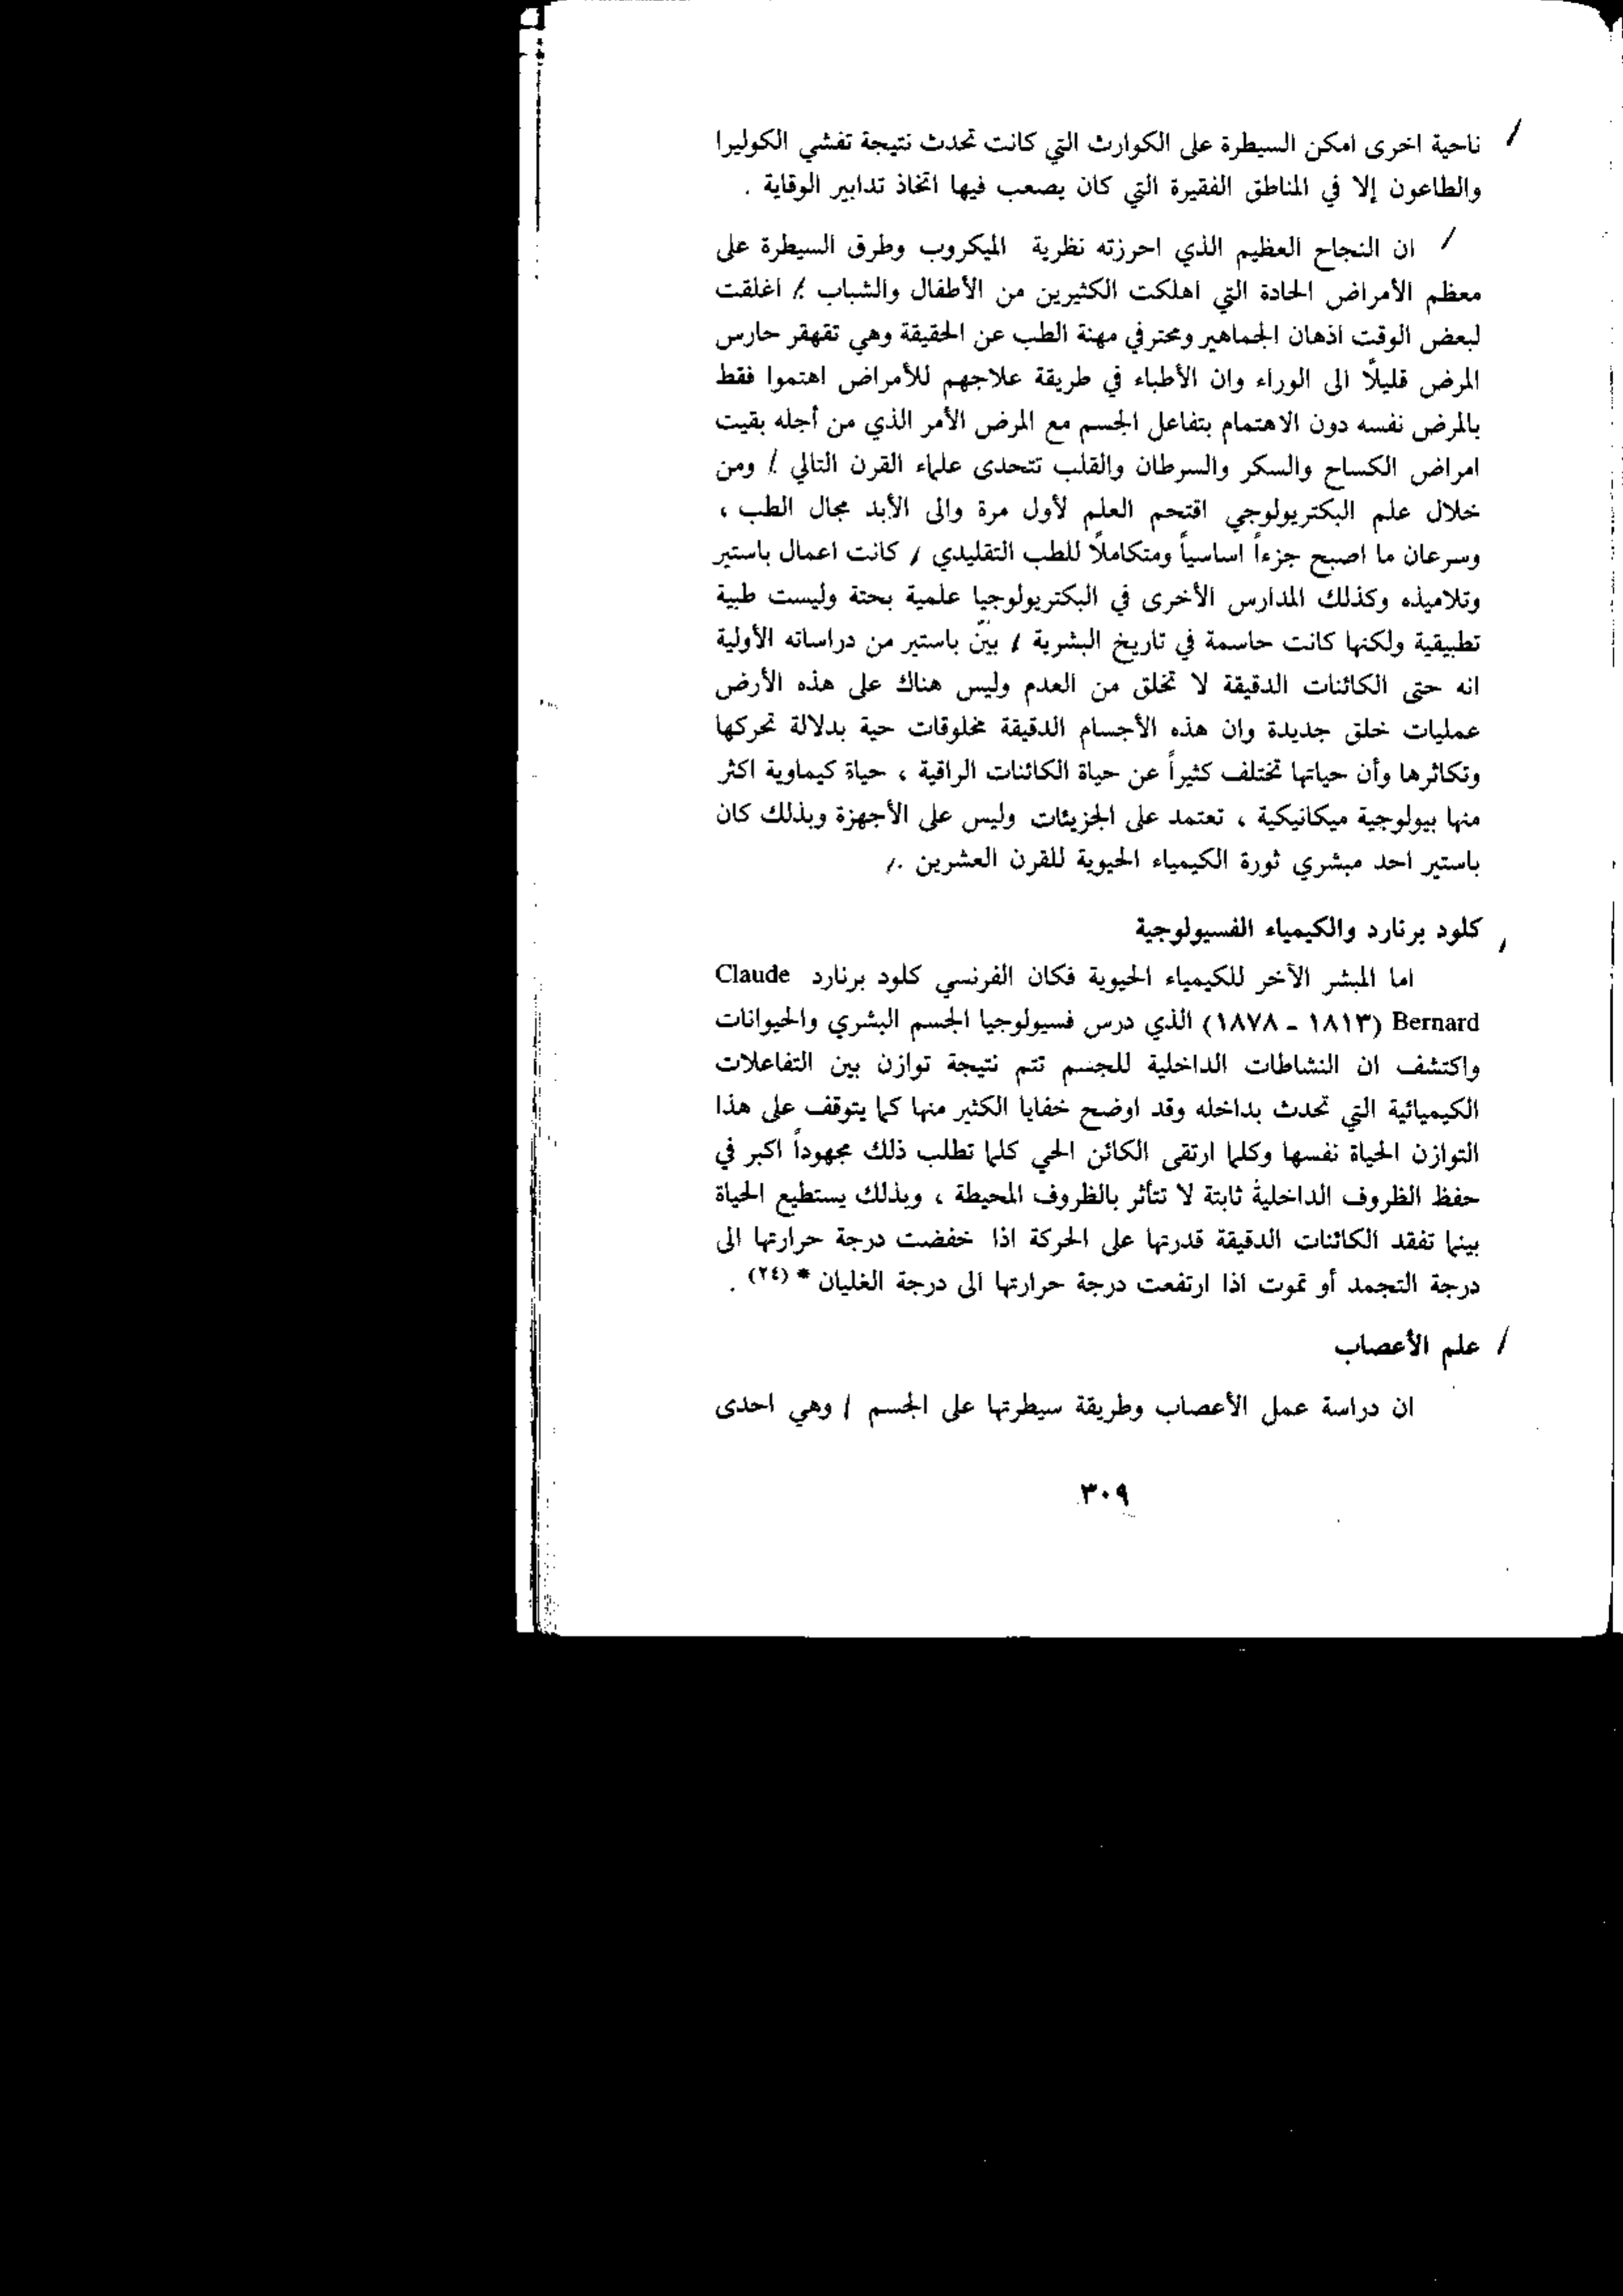 ناحية اخرى امكن السيطرة على الكوارث التي كانت تحدث نتيجة تفشي الكوليرا
والطاعون إلا في المناطق الفقيرة التي كان يصعب فيها اتخاذ تدابير الوقاية .
ان النجاح العظيم الذي احرزته نظرية الميكروب وطرق السيطرة على
معظم الأمراض الحادة التي اهلكت الكثيرين من الأطفال والشباب / اغلقت
لبعض الوقت اذهان الجماهير ومحترفي مهنة الطب عن الحقيقة وهي تقهقر حارس
المرض قليلاً الى الوراء وان الأطباء في طريقة علاجهم للأمراض اهتموا فقط
بالمرض نفسه دون الاهتمام بتفاعل الجسم مع المرض الأمر الذي من أجله بقيت
امراض الكساح والسكر والسرطان والقلب تتحدى علماء القرن التالي / ومن
خلال علم البكتريولوجي اقتحم العلم لأول مرة والى الأبد مجال الطب ،
وسرعان ما اصبح جزءاً اساسياً ومتكاملاً للطب التقليدي / كانت اعمال باستير
وتلاميذه وكذلك المدارس الأخرى في البكتريولوجيا علمية بحتة وليست طبية
تطبيقية ولكنها كانت حاسمة في تاريخ البشرية / بيّن باستير من دراساته الأولية
انه حتى الكائنات الدقيقة لا تخلق من العدم وليس هناك على هذه الأرض
عمليات خلق جديدة وان هذه الأجسام الدقيقة مخلوقات حية بدلالة تحركها
وتكاثرها وأن حياتها تختلف كثيراً عن حياة الكائنات الراقية ، حياة كيماوية اكثر
منها بيولوجية ميكانيكية ، تعتمد على الجزيئات وليس على الأجهزة وبذلك كان
باستير احد مبشري ثورة الكيمياء الحيوية للقرن العشرين ./
كلود برنارد والكيمياء الفسيولوجية
اما المبشر الآخر للكيمياء الحيوية فكان الفرنسي كلود برنارد Claude
Bernard (١٨١٣ - ١٨٧٨) الذي درس فسيولوجيا الجسم البشري والحيوانات
واكتشف ان النشاطات الداخلية للجسم تتم نتيجة توازن بين التفاعلات
الكيميائية التي تحدث بداخله وقد اوضح خفايا الكثير منها كما يتوقف على هذا
التوازن الحياة نفسها وكلما ارتقى الكائن الحي كلما تطلب ذلك مجهوداً اكبر في
حفظ الظروف الداخلية ثابتة لا تتأثر بالظروف المحيطة ، وبذلك يستطيع الحياة
بينما تفقد الكائنات الدقيقة قدرتها على الحركة اذا خفضت درجة حرارتها الى
درجة التجمد أو تموت اذا ارتفعت درجة حرارتها الى درجة الغليان * (٢٤) .
علم الأعصاب
ان دراسة عمل الأعصاب وطريقة سيطرتها على الجسم / وهي احدى
٣٠٩